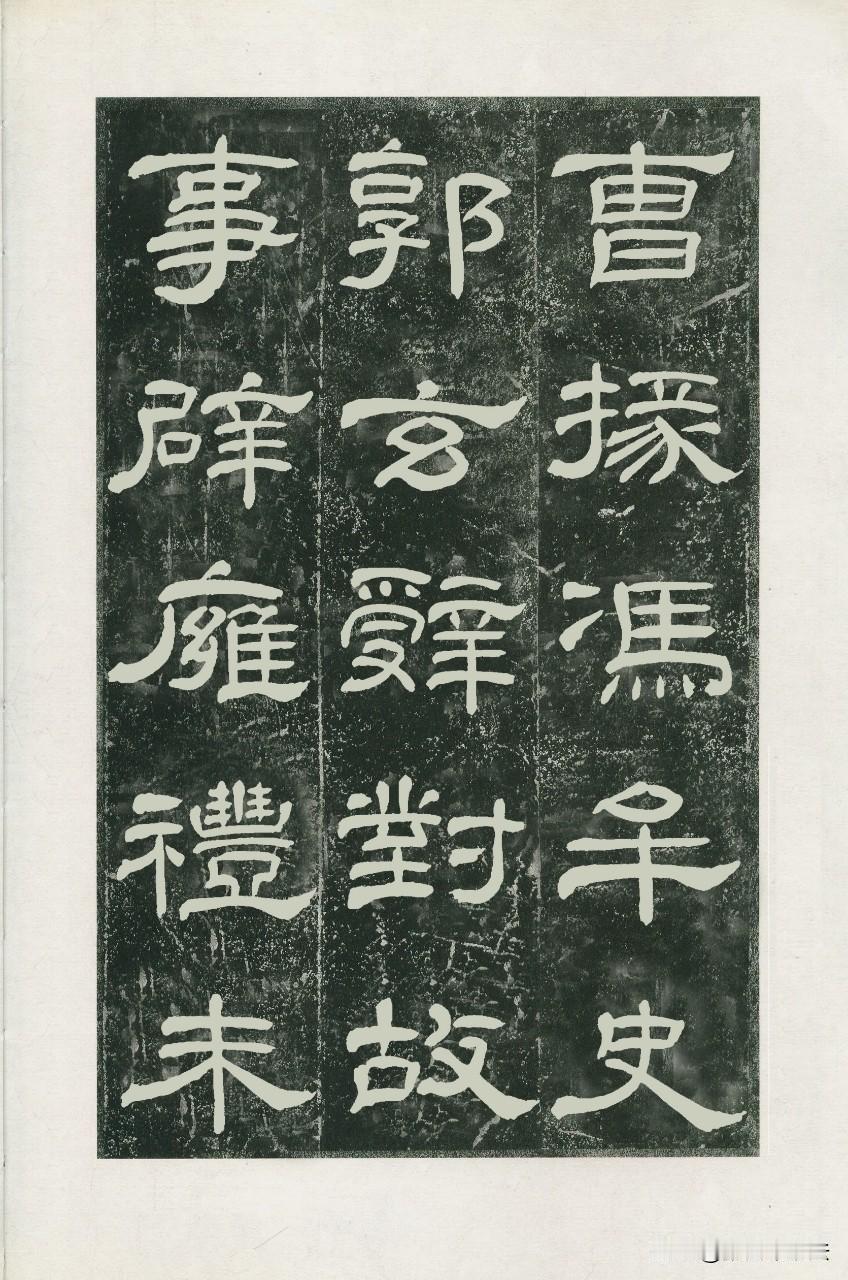 曹掾馮牟史
郭玄辤對故
事辟廱禮未